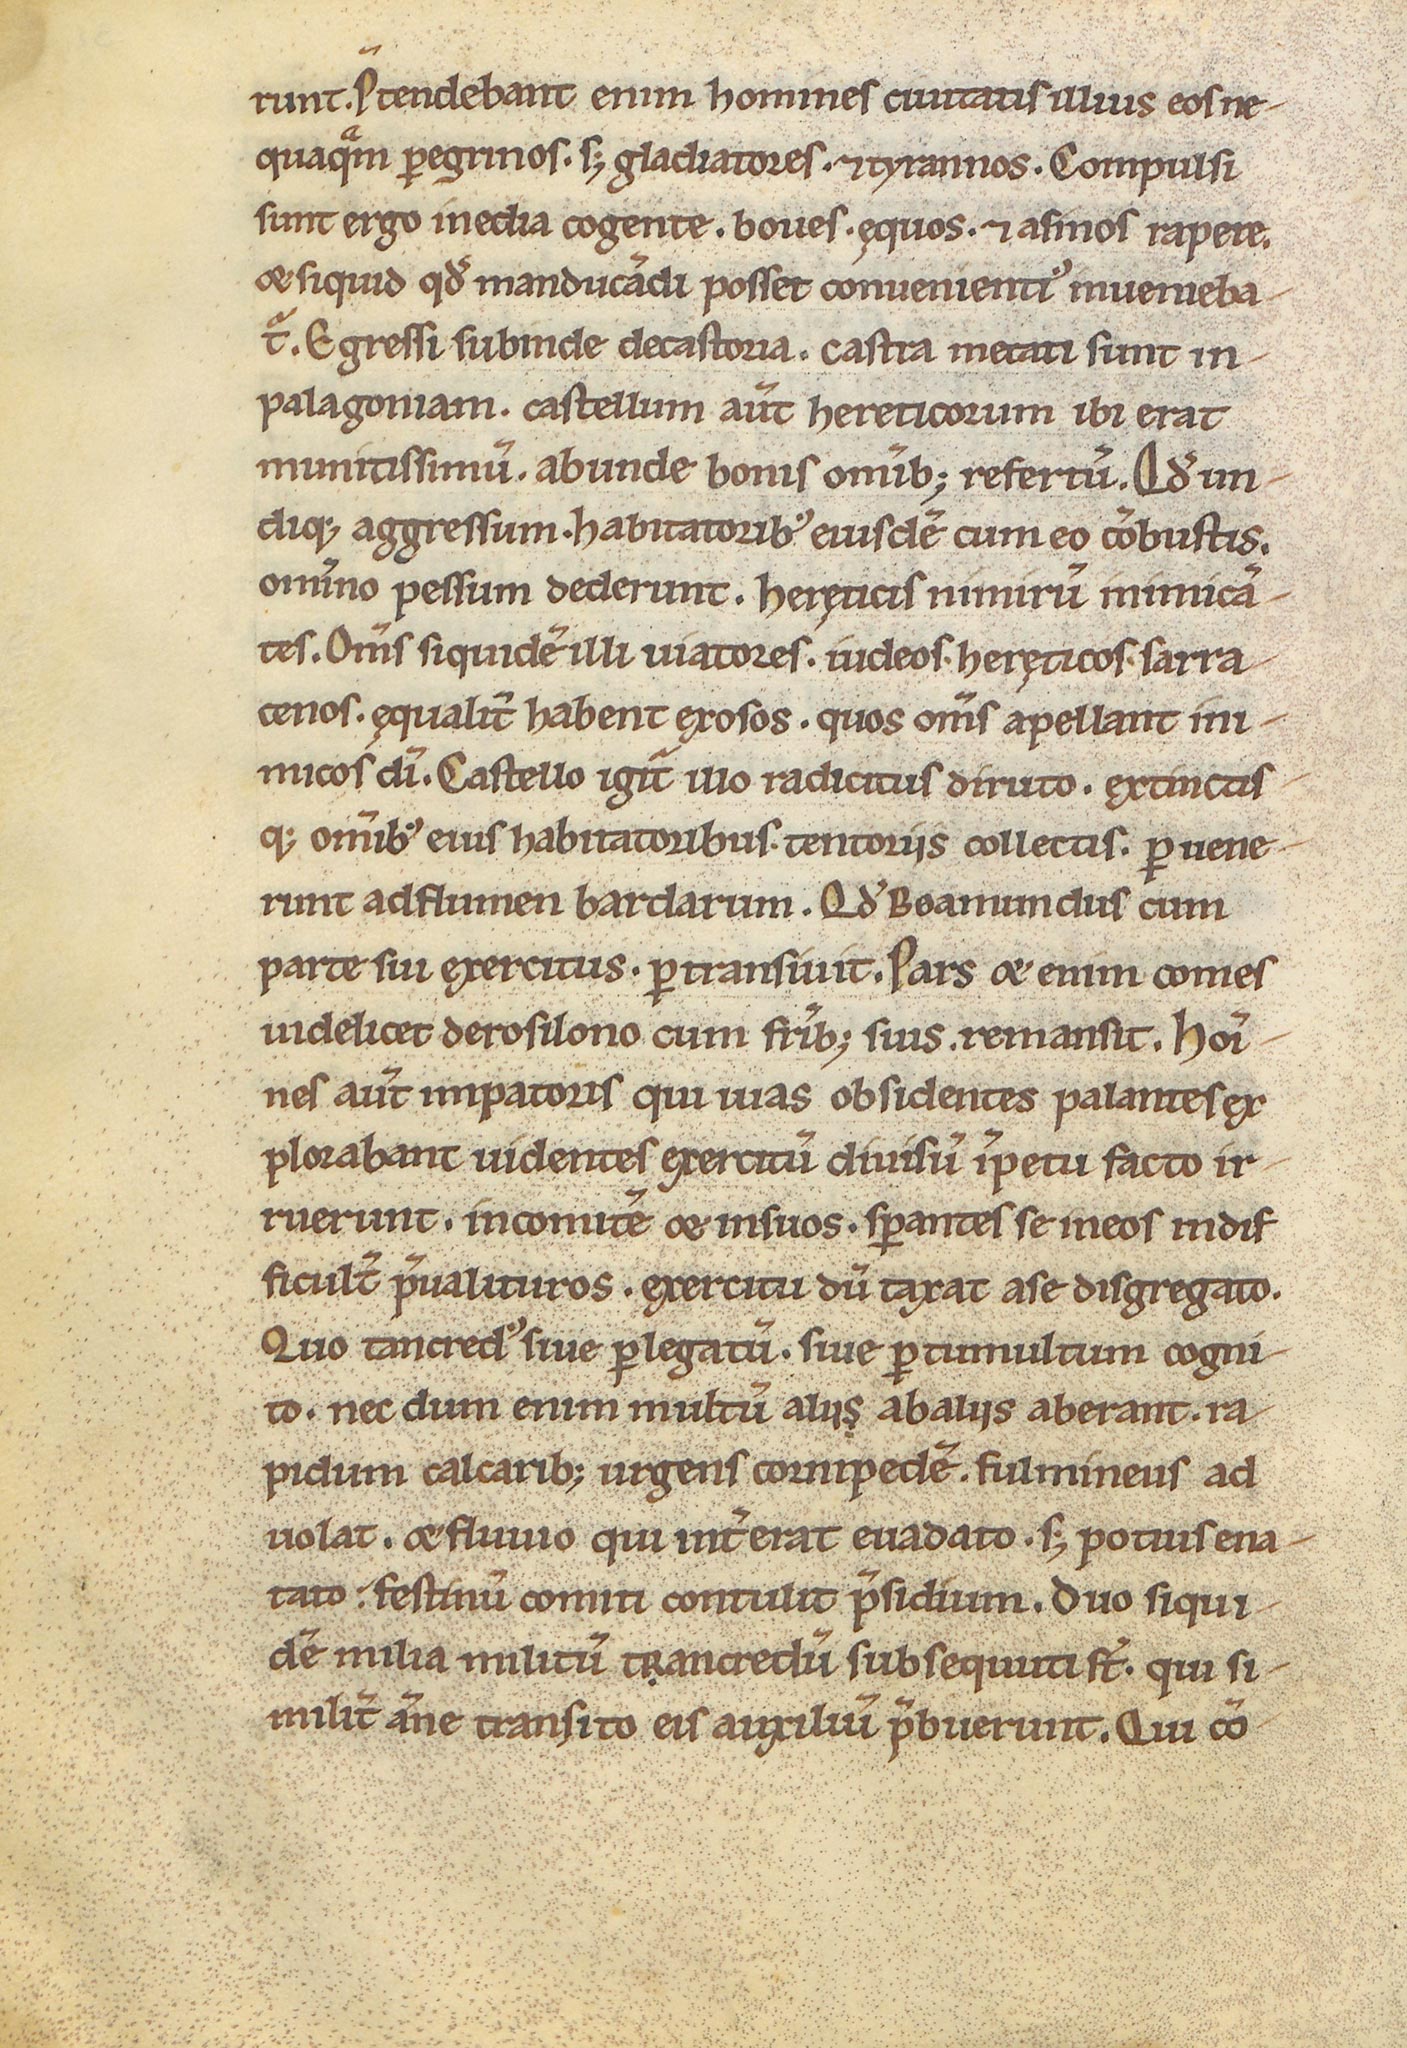 runt. P̃tendebant enim homines ciuitatis illius eos ne-
quaqͣm ꝑegrinos. s; gladiatores. ⁊ tyrannos. Compulsi
sunt ergo inedia cogente. boues. ęquos. ⁊ asinos rapere.
& siquid qd̛ manducādi posset conuenientiꝰ inuenieba-
tͣ. Egressi subinde decastoria. castra metati sunt in-
palagoniam. castellum aut̃ hereticorum ibi erat
munitissimū. abunde bonis om̃ib; refertū. Qd̛ un-
diq; aggressum. habitatoribꝰ eiusdē cum eo cōbustis.
om̃ino pessum dederunt. heręticis nimirū inimicā-
tes. Om̃s siquidē illi uiatores. iudeos. heręticos. sarra-
cenos. ęqualit̃ habent exosos. quos om̃s apellant ini-
micos dī. Castello igit̃ illo radicitus diruto. extinctis-
q; om̃ibꝰ eius habitatoribus. tentoriis collectis. ꝑuene-
runt adflumen bardarum. Qd̛ Boamundus cum
parte sui exercitus. ꝑtransiuit. Pars & enim comes
uidelicet derosilono cum fr̃ib; suis. remansit. Hoī-
nes aut̃ imꝑatoris qui uias obsidentes palantes ex
plorabant uidentes exercitū diuisū īpetu facto ir-
ruerunt. incomitē & insuos. sꝑantes se ineos indif
ficult̃ p̄ualituros. exercitu dū taxat ase disgregato.
Quo tancredꝰ siue ꝑlegatū. siue ꝑtumultum cogni-
to. nec dum enim multū aliis̩ abaliis aberant. ra-
pidum calcarib; urgens cornipedē. fulmineus ad
uolat. & fluuio qui int̃erat euadato. s; potius ena-
tato. festinū comiti contulit p̄sidium. Duo siqui-
dē milia militū tṛancredū subsequuti st̃. qui si-
milit̃ āne transito eis auxiliū p̄buerunt. Qui cō-